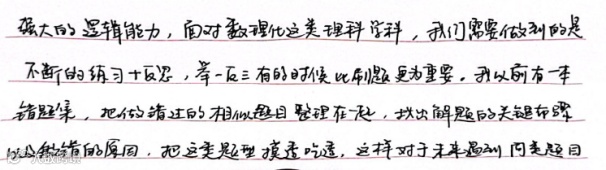 强大的逻辑能力，面对数理化这类理科学科，我们需要做到的是
不断的练习+反思，举一反三有的时候比刷题更为重要。我以前有一本
错题集，把做错过的相似题目整理在一起，找出解题的关键步骤
以及做错的原因，把这类题型摸透吃透，这样对于未来遇到同类题目